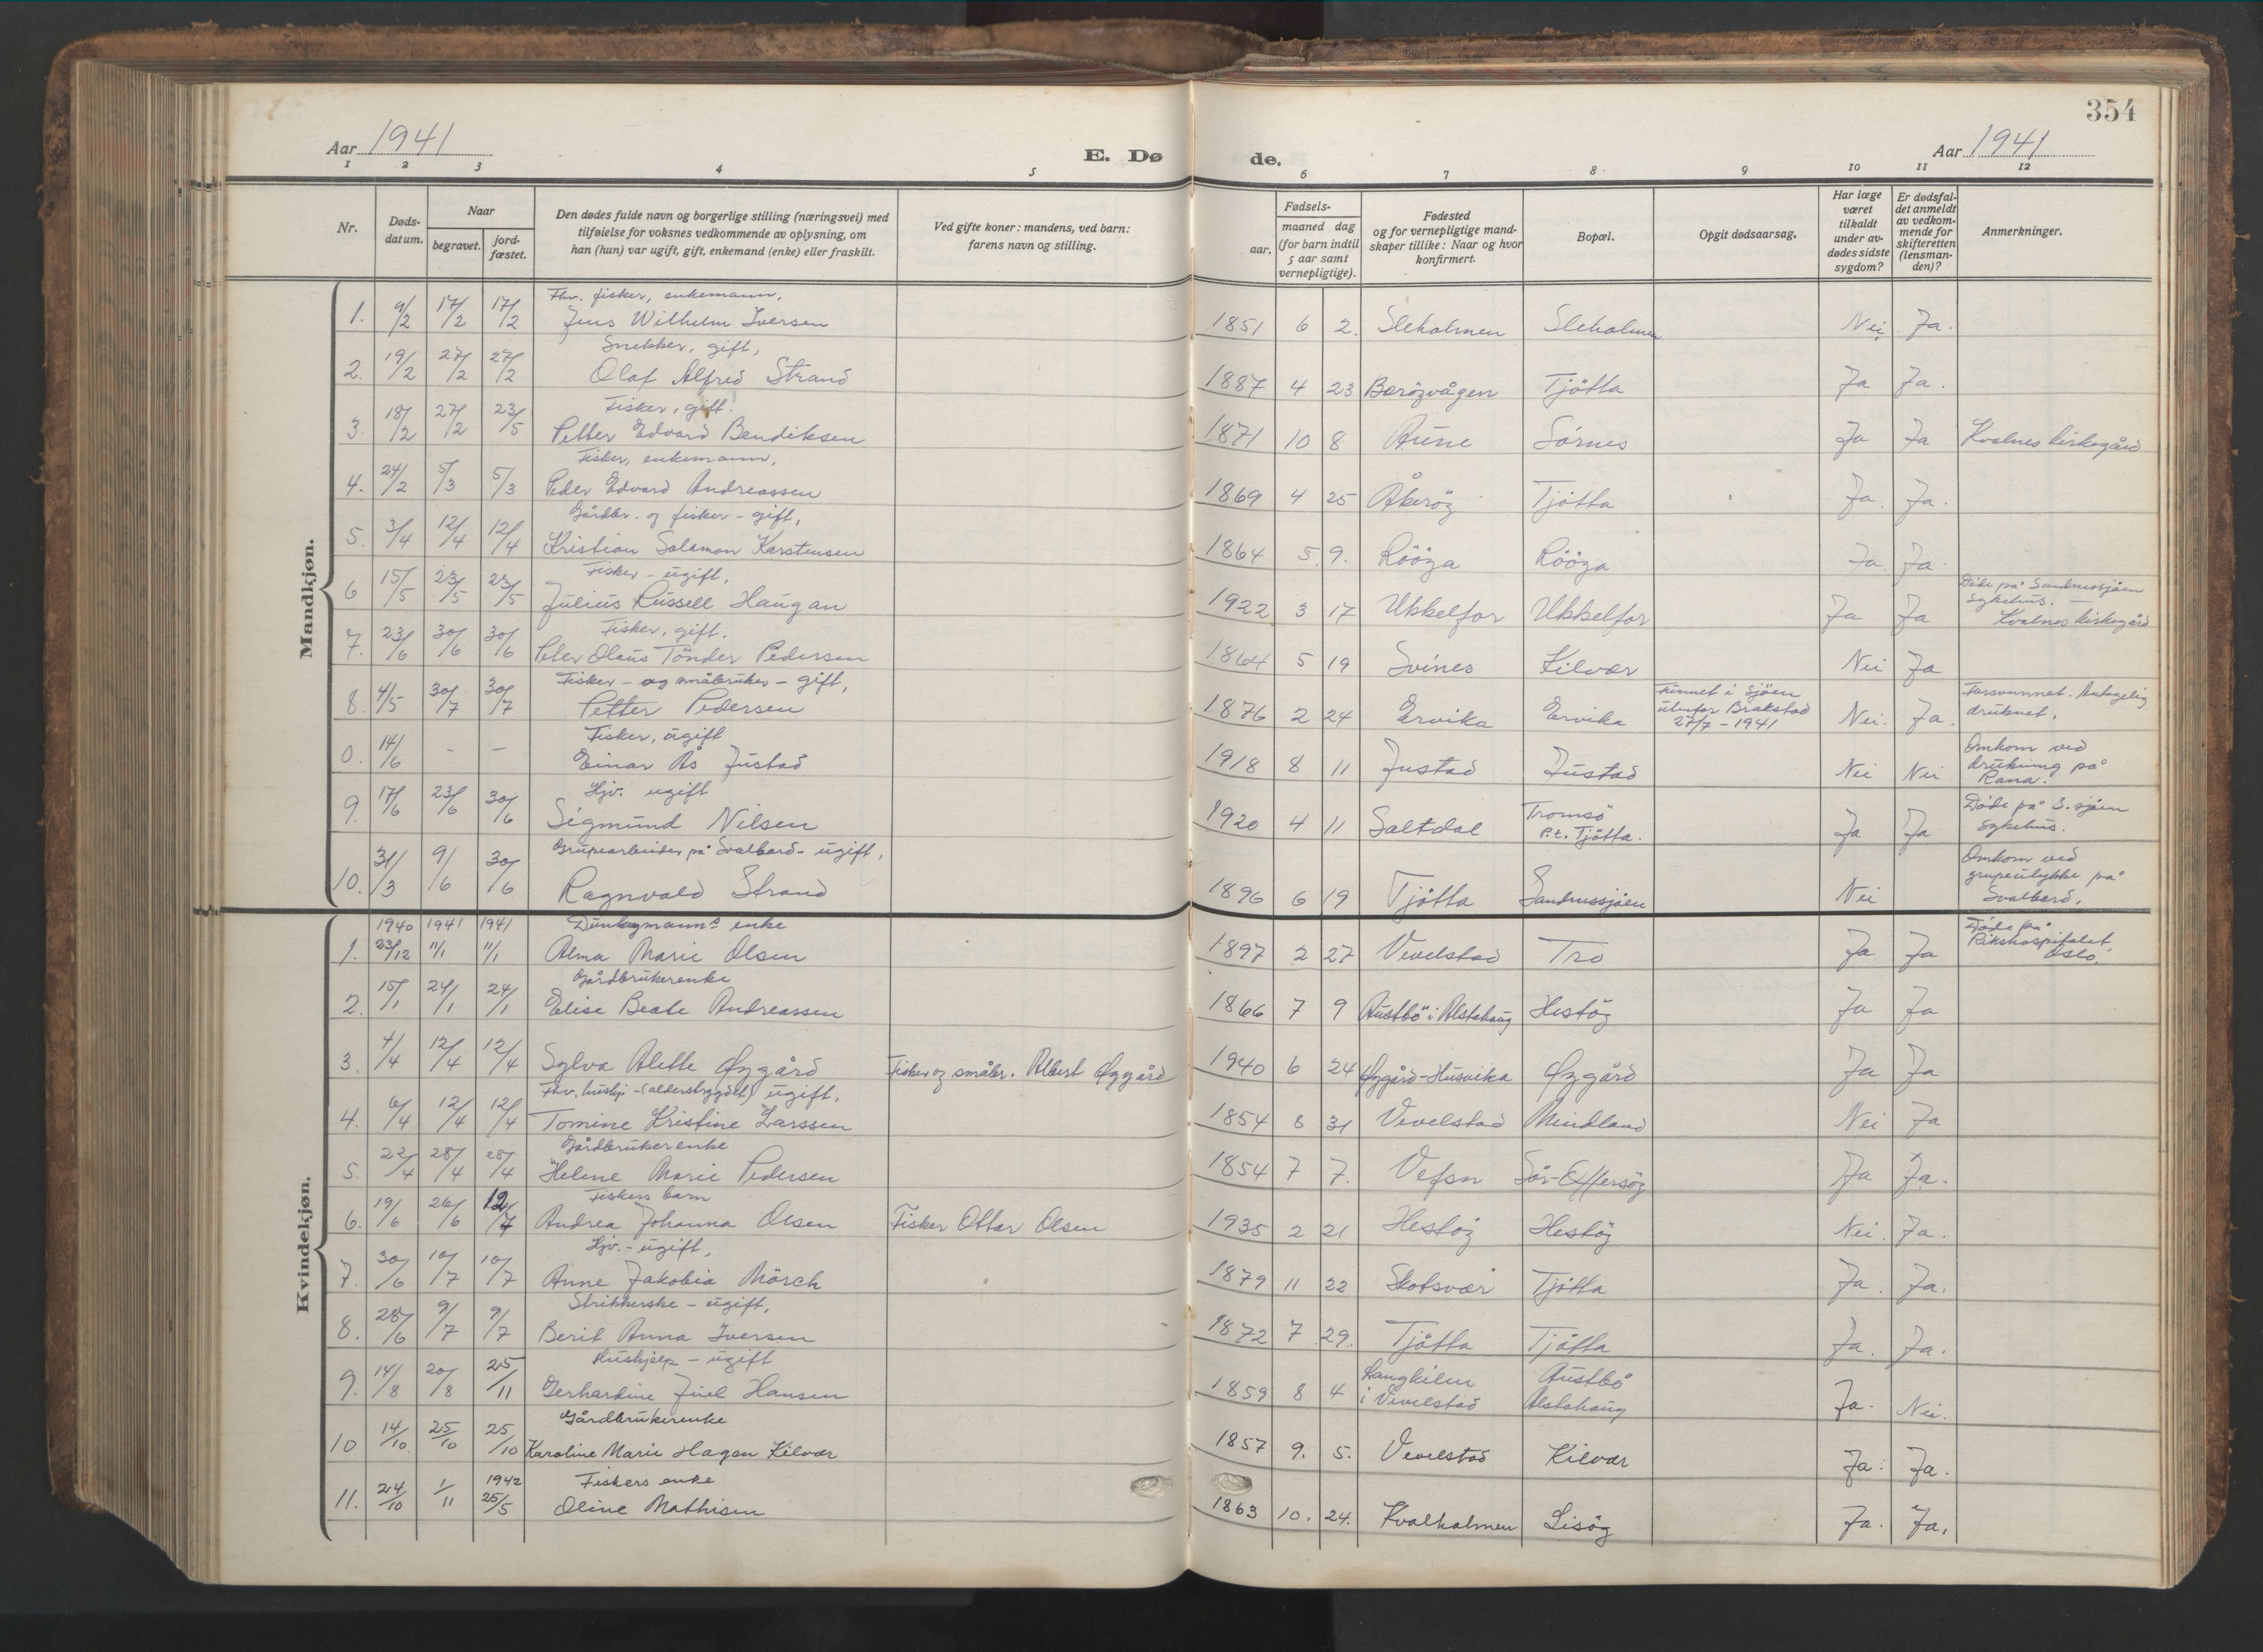 354
Aar 1941
E. Døde.
Aar 1941
1 2 3 4 5 6 7 8 9 10 11 12
Nr.
Dødsdatum.
Naar
begravet.
jordfæstet.
Den dødes fulde navn og borgerlige stilling (næringsvei) med
tilføielse for voksnes vedkommende av oplysning, om
han (hun) var ugift, gift, enkemand (enke) eller fraskilt.
Ved gifte koner: mandens, ved barn:
farens navn og stilling.
Fødsels-
aar.
maaned dag
(for barn indtil
5 aar samt
vernepligtige).
Fødested
og for vernepligtige mand-
skaper tillike: Naar og hvor
konfirmert.
Bopæl.
Opgit dødsaarsag.
Har læge
været
tilkaldt
under av-
dødes sidste
sygdom?
Er dødsfal-
det anmeldt
av vedkom-
mende for
skifteretten
(lensman-
den)?
Anmerkninger.
Mandkjøn.
Fhv. fisker, enkemann,
1. 9/2 17/2 17/2 Jens Wilhelm Iversen 1851 6 2. Sleholmen Sleholmen Nei Ja.
Snekker, gift,
2. 19/2 27/2 27/2 Olaf Alfred Strand 1887 4 23 Barøzvågen Tjøtta Ja Ja.
Fisker, gift.
3. 18/2 27/2 23/5 Petter Edvard Bendiksen 1871 10 8 Aune Sørnes Ja Ja Kvalnes kirkegård
Fisker, enkemann,
4. 24/2 5/3 5/3 Peder Edvard Andreassen 1869 4 25 Åkerøy Tjøtta Ja. Ja.
Gårdbr. og fisker - gift,
5. 3/4 12/4 12/4 Kristian Salamon Karstensen 1864 5 9. Rööya Rööya Ja. Ja
Fisker - ugift,
6 15/5 23/5 23/5 Julius Russell Haugan 1922 3 17 Ukkelfor Ukkelfor Ja Ja Döde på Sandnessjøen
sykehus. —
Kvalnes kirkegård
Fisker, gift.
7. 23/6 30/6 30/6 Peter Olaus Tönder Pedersen 1864 5 19 Svines Kilvær Nei Ja
Fisker - og småbruker - gift,
8. 4/5 30/7 30/7 Petter Pedersen 1876 2 24 Ervika Ervika Funnet i sjöen
utenfor Brakstad
27/7 - 1941 Nei. Ja. Forsvunnet. Antagelig
druknet.
Fisker, ugift
0. 14/6 - - Einar Ås Justad 1918 8 11 Justad Justad Nei Nei Omkom ved
drukning på
Rana.
Hjv. ugift
9. 17/6 23/6 30/6 Sigmund Nilsen 1920 4 11 Saltdal Tromsö
P.t. Tjøtta. Ja Ja Döde på S.sjøen
sykehus.
Grupearbeider på Svalbard - ugift,
10. 31/3 9/6 30/6 Ragnvald Strand 1896 6 19 Tjøtta Sandnessjøen Nei Omkom ved
grupeulykke på
Svalbard.
Kvindekjøn.
1940 1941 1941 enke
1. 23/12 11/1 11/1 Alma Marie Olsen 1897 2 27 Vevelstad Tro Ja Ja Döde på
Rikshospitalet,
Oslo.
Gårdbrukerenke
2. 15/1 24/1 24/1 Elise Beate Andreassen 1866 7 9 Austbö i Alstahaug Hestöy Ja Ja
3. 4/4 12/4 12/4 Sylva Alette Øygård Fisker og småbr. Albert Øygård 1940 6 24 Øygård-Husvika Øygård Ja Ja
Fhv. hushj. - (alderstrygdet) ugift,
4. 6/4 12/4 12/4 Tomine Kristine Larssen 1854 8 31 Vevelstad Mindland Nei Ja
Gårdbrukerenke
5. 22/4 28/4 28/4 Helene Marie Pedersen 1854 7 7. Vefsn Sör-Offersöy Ja Ja.
Fiskers barn
6. 19/6 26/6 12/7 Andrea Johanna Olsen Fisker Ottar Olsen 1935 2 21 Hestöy Hestöy Nei. Ja.
Hjv. - ugift,
7. 30/6 10/7 10/7 Anne Jakobia Mörch 1879 11 22 Skotsvær Tjøtta Ja. Ja.
Strikkerske - ugift,
8. 28/6 9/7 9/7 Berit Anna Iversen 1872 7 29. Tjøtta Tjøtta Ja. Ja.
Hushjelp - ugift
9. 14/8 20/8 25/11 Gerhardine Juel Hansen 1859 8 4 Langkilen
i Vevelstad Austbö
Alstahaug Ja. Nei.
Gårdbrukerenke
10 14/10 25/10 25/10 Karoline Marie Hagen Kilvær 1857 9. 5. Vevelstad Kilvær Ja. Ja.
1942 Fiskers enke
11. 24/10 1/11 25/5 Oline Mathisen 1863 10. 24. Kvalholmen Lisöy Ja. Ja.